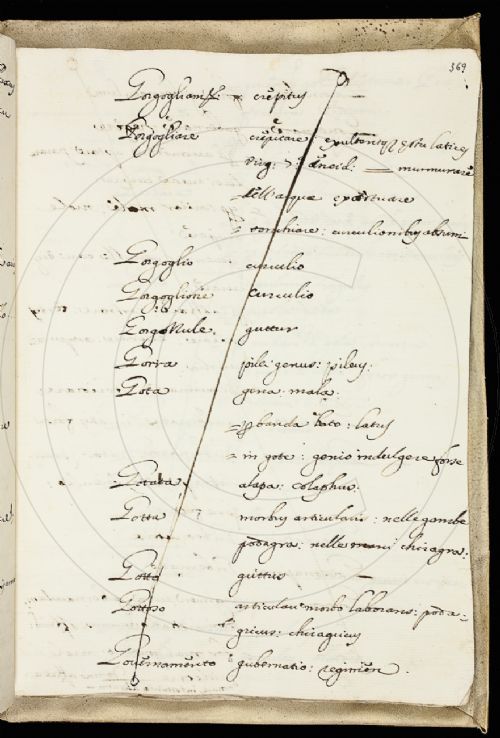 369
Gorgogliam crepitus
Gorgogliare crepitare: exultantq æstu latices
Virg: 7: æneid: murmurare
dell'acque
= curculionibus
Gorgoglio curculio
Gorgoglione curculio
Gorgozzule. guttur
Gorra pilei genus: pileus.
Gota gena: mala.
= p banda lato: latus
= in gote: genio indulgere forse
Gotata alapa: colaphus.
Gotta morbus articularis: nelle gambe
podagra: nelle mani chiragra:
Gotto guttus
Gottoso articulari morbo laborans: poda=
gricus: chiragricus
Governamento gubernatio: regimen.